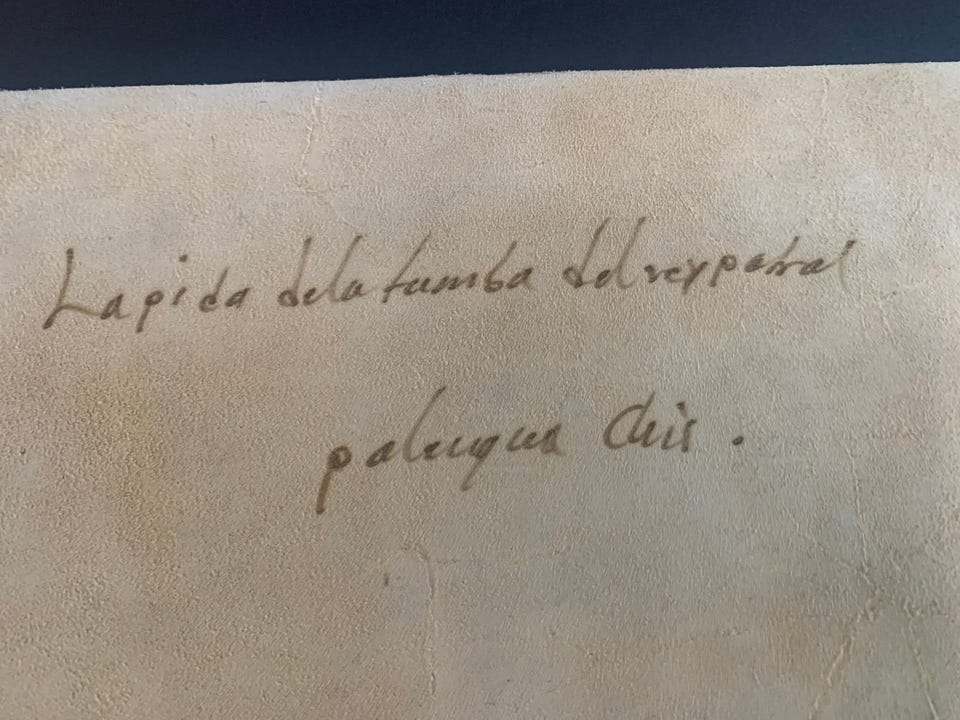 Lapida dela tumba del rey pakal
palenque Chis.